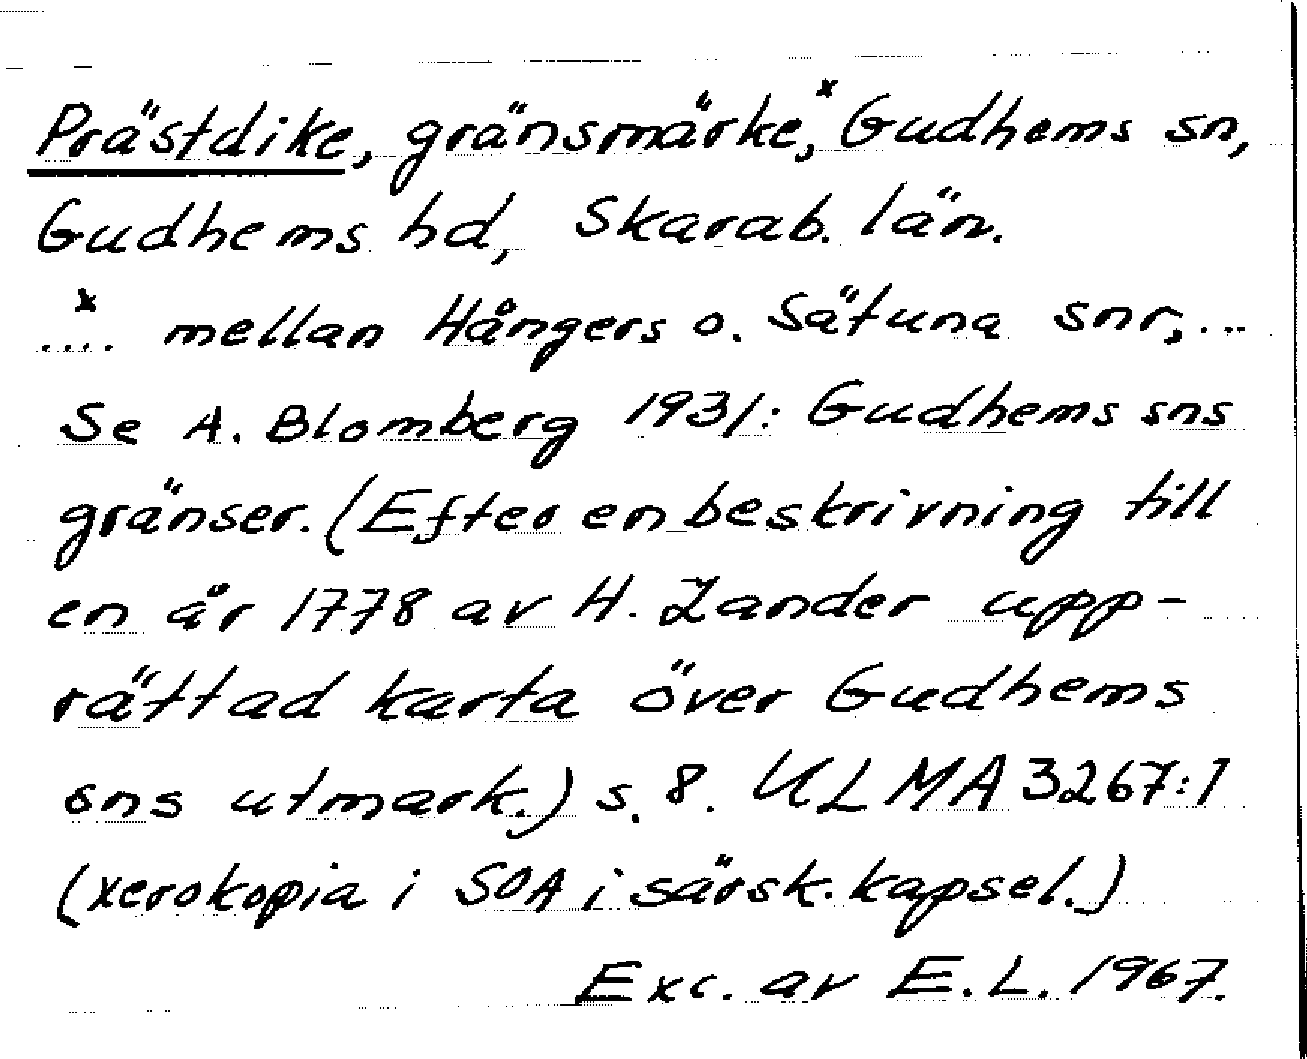 Prästdike, gränsmärke,ˣ Gudhems sn,
Gudhems hd, Skarab. län.
....ˣ mellan Hångers o. Sätuna snr,...
Se A. Blomberg 1931: Gudhems sns
gränser. (Efter en beskrivning till
en år 1778 av H. Zander upp-
rättad karta över Gudhems
sns utmark.) s. 8. ULMA 3267:1
(xerokopia i SOA i särsk. kapsel.)
Exc. av E. L. 1967.